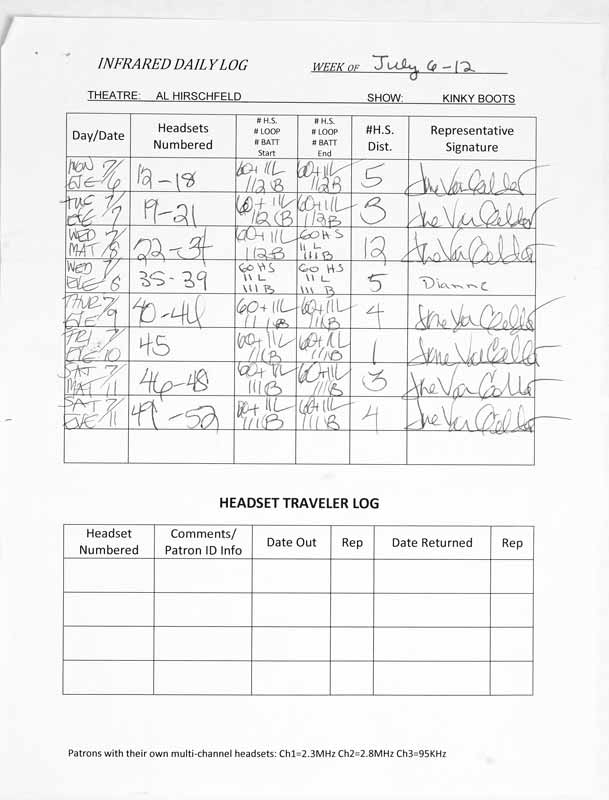 INFRARED DAILY LOG WEEK OF July 6-12
THEATRE: AL HIRSCHFELD SHOW: KINKY BOOTS
Day/Date Headsets Numbered # H.S. # LOOP # BATT Start # H.S. # LOOP # BATT End #H.S. Dist. Representative Signature
MON 7/6 EVE 12-18 60+ 11L 112B 60+ 11L 112B 5
TUE 7/7 EVE 19-21 60+ 11L 112B 60+ 11L 112B 3
WED 7/8 MAT 60+ 11L 112B 60 HS 11 L 111 B 12
WED 7/8 EVE 35-39 60 HS 11 L 111 B 60 HS 11 L 111 B 5 Dianne
THUR 7/9 EVE 40-44 60+ 11L 111B 60+ 11L 111B 4
FRI 7/10 EVE 45 60+ 11L 111B 60+ 11L 111B 1
SAT 7/11 MAT 46-48 60+ 11L 111B 60+ 11L 111B 3
SAT 7/11 EVE 49-52 60+ 11L 111B 60+ 11L 111B 4
HEADSET TRAVELER LOG
Headset Numbered Comments/ Patron ID Info Date Out Rep Date Returned Rep
Patrons with their own multi-channel headsets: Ch1=2.3MHz Ch2=2.8MHz Ch3=95KHz